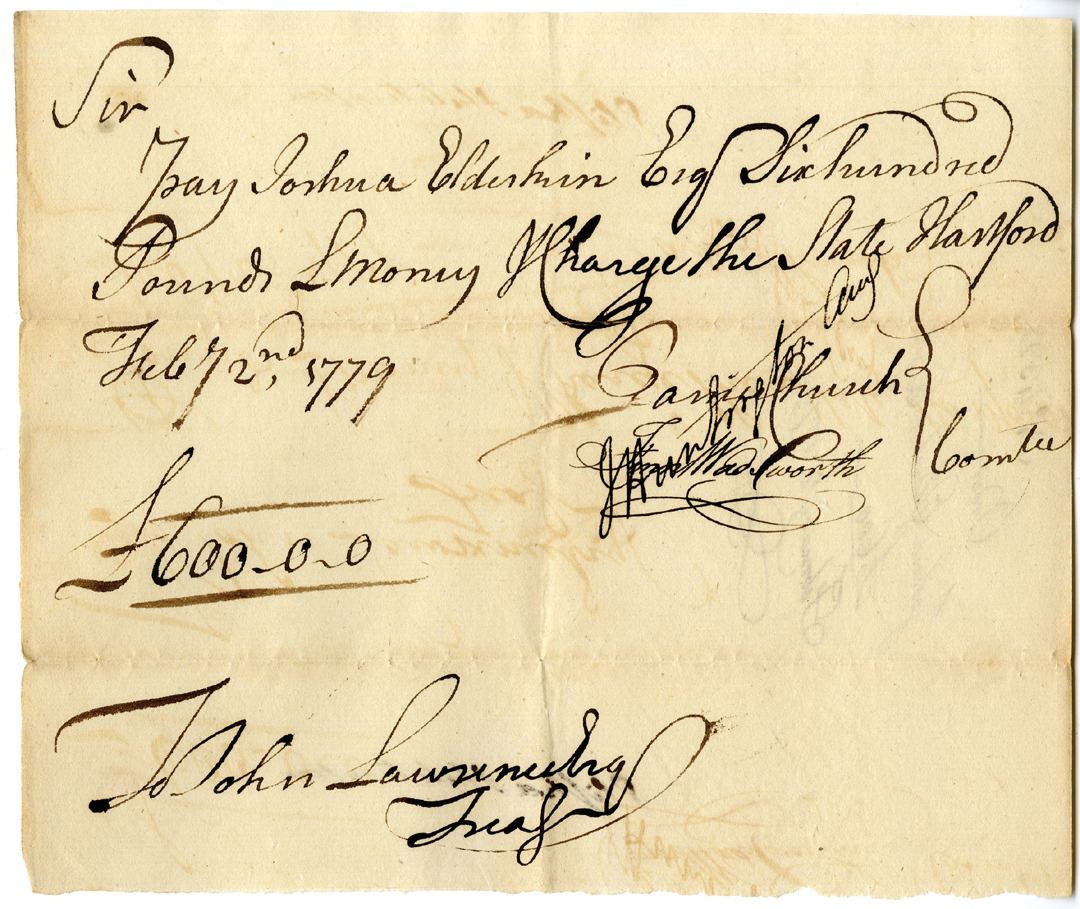 Sir
Pay Joshua Elderkin Esqr Six hundred
Pounds L Money & Charge the State Hartford
Feby 2nd, 1779
Church
Wadsworth
Comtee
£600-0-0
To John Lawrence Esq
Treasr